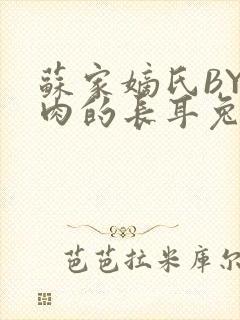 蘇家嫡氏BY
肉的长耳兔
芭芭拉米库尔